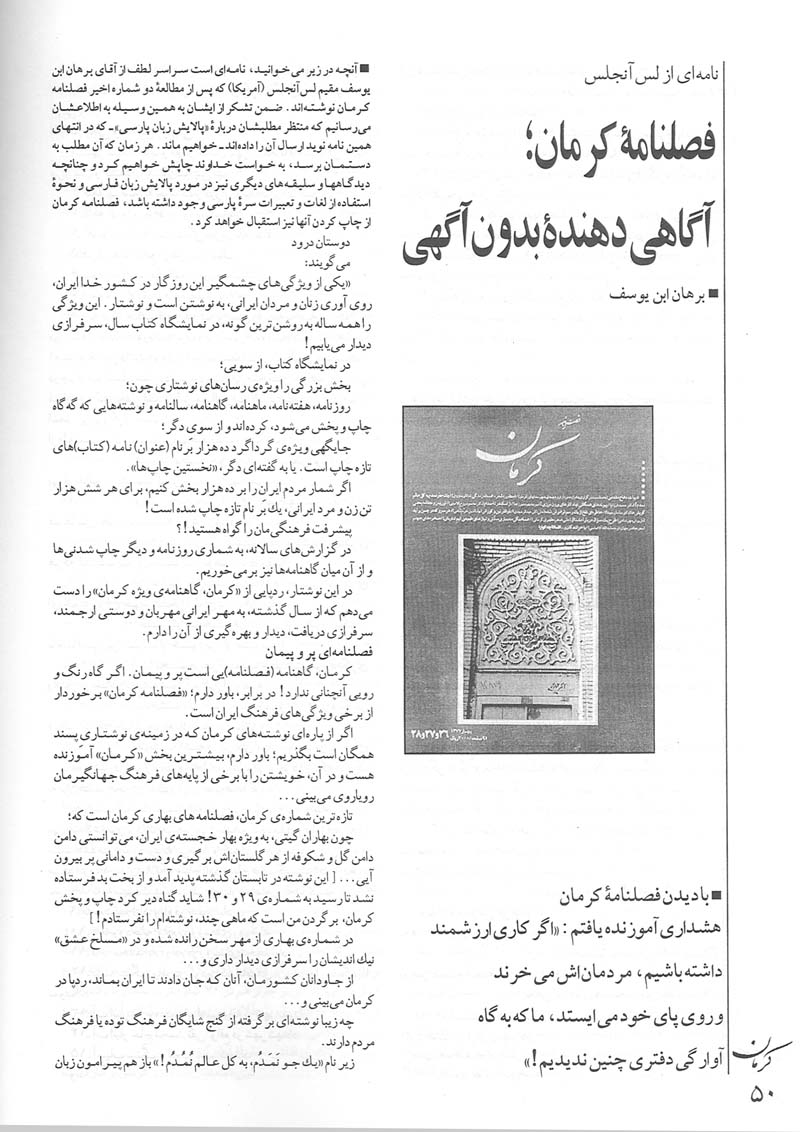 نامه‌ای از لس آنجلس
فصلنامهٔ کرمان؛
آگاهی دهندهٔ بدون آگهی
■ برهان ابن یوسف
کرمان
۲۶و۲۷و۲۸
■ با دیدن فصلنامهٔ کرمان
هشداری آموزنده یافتم : «اگر کاری ارزشمند
داشته باشیم، مردمان‌اش می خرند
و روی پای خود می ایستد، ما که به گاه
آوارگی دفتری چنین ندیدیم!»
■ آنچه در زیر می‌خوانید، نامه‌ای است سراسر لطف از آقای برهان ابن
یوسف مقیم لس‌آنجلس (آمریکا) که پس از مطالعهٔ دو شماره اخیر فصلنامه
کرمان نوشته‌اند. ضمن تشکر از ایشان به همین وسیله به اطلاعشان
می‌رسانیم که منتظر مطلبشان دربارهٔ «پالایش زبان پارسی» ـ که در انتهای
همین نامه نوید ارسال آن را داده‌اند ـ خواهیم ماند. هر زمان که آن مطلب به
دستمان برسد، به خواست خداوند چاپش خواهیم کرد و چنانچه
دیدگاهها و سلیقه‌های دیگری نیز در مورد پالایش زبان فارسی و نحوهٔ
استفاده از لغات و تعبیرات سرهٔ پارسی وجود داشته باشد، فصلنامه کرمان
از چاپ کردن آنها نیز استقبال خواهد کرد.
دوستان درود
می‌گویند:
«یکی از ویژگی‌های چشمگیر این روزگار در کشور خدا ایران،
روی آوری زنان و مردان ایرانی، به نوشتن است و نوشتار. این ویژگی
را همه ساله به روشن‌ترین گونه، در نمایشگاه کتاب سال، سرفرازی
دیدار می‌یابیم!
در نمایشگاه کتاب، از سویی؛
بخش بزرگی را ویژه‌ی رسان‌های نوشتاری چون؛
روزنامه، هفته‌نامه، ماهنامه، گاهنامه، سالنامه و نوشته‌هایی که گه‌گاه
چاپ و پخش می‌شود، کرده‌اند و از سوی دگر؛
جایگهی ویژه‌ی گرداگرد ده هزار بَر نام (عنوان) نامه (کتاب)های
تازه چاپ است. یا به گفته‌ای دگر، «نخستین چاپ‌ها».
اگر شمار مردم ایران را بر ده هزار بخش کنیم، برای هر شش هزار
تن زن و مرد ایرانی، یك بَر نام تازه چاپ شده است!
پیشرفت فرهنگی‌مان را گواه هستید!؟
در گزارش‌های سالانه، به شماری روزنامه و دیگر چاپ شدنی‌ها
و از آن میان گاهنامه‌ها نیز برمی‌خوریم.
در این نوشتار، ردپایی از «کرمان، گاهنامه‌ی ویژه کرمان» را دست
می‌دهم که از سال گذشته، به مهر ایرانی مهربان و دوستی ارجمند،
سرفرازی دریافت، دیدار و بهره‌گیری از آن را دارم.
فصلنامه‌ای پر و پیمان
کرمان، گاهنامه (فصلنامه)یی است پر و پیمان. اگر گاه رنگ و
رویی آنچنانی ندارد! در برابر، باور دارم؛ «فصلنامه کرمان» برخوردار
از برخی ویژگی‌های فرهنگ ایران است.
اگر از پاره‌ای نوشته‌های کرمان که در زمینه‌ی نوشتاری پسند
همگان است بگذریم؛ باور دارم، بیشترین بخش «کرمان» آموزنده
هست و در آن، خویشتن را با برخی از پایه‌های فرهنگ جهانگیرمان
رویاروی می‌بینی...
تازه‌ترین شماره‌ی کرمان، فصلنامه‌های بهاری کرمان است که؛
چون بهاران گیتی، به ویژه بهار خجسته‌ی ایران، می‌توانستی دامن
دامن گل و شکوفه از هر گلستان‌اش برگیری و دست و دامانی پر بیرون
آیی... [ این نوشته در تابستان گذشته پدید آمد و از بخت بد فرستاده
نشد تا رسید به شماره‌ی ۲۹ و ۳۰! شاید گناه دیر کرد چاپ و پخش
کرمان، بر گردن من است که ماهی چند، نوشته‌ام را نفرستادم! ]
در شماره‌ی بهاری از مهر سخن رانده شده و در «مسلخ عشق»
نیك اندیشان را سرفرازی دیدار داری و...
از جاودانان کشورمان، آنان که جان دادند تا ایران بماند، ردپا در
کرمان می‌بینی و...
چه زیبا نوشته‌ای برگرفته از گنج شایگان فرهنگ توده یا فرهنگ
مردم دارند.
زیر نام «یك جو نَمَدُم، به کل عالم نُمُدُم!» باز هم پیرامون زبان
کرمان
۵۰